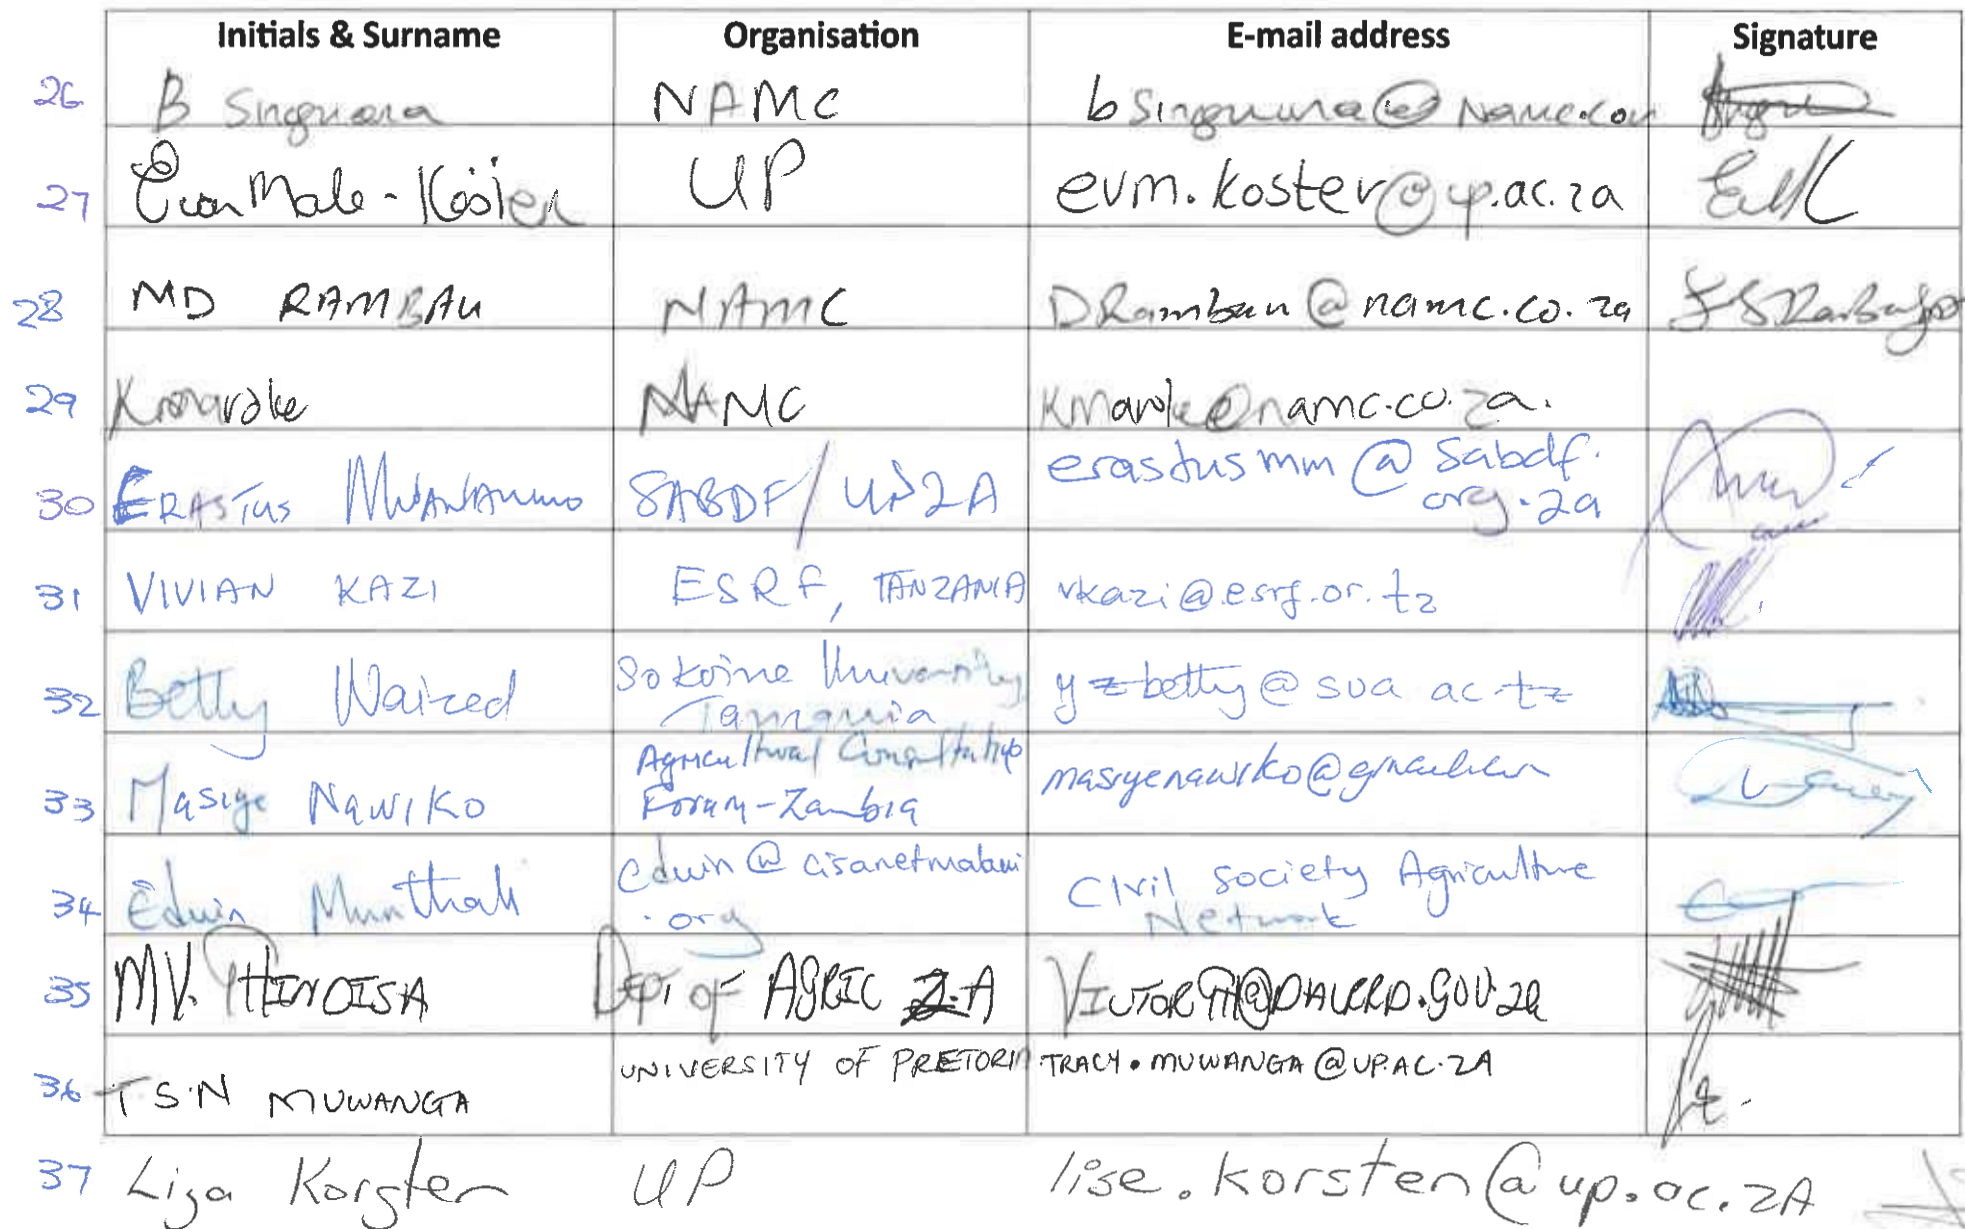 Initials & Surname Organisation E-mail address Signature
26 B NAMC
27 UP evm.koster@up.ac.za
28 MD RAMBAU NAMC DRambau@namc.co.za
29 Kmarole NAMC Kmarole@namc.co.za.
30 ERASTUS SABDF / erastusmm@sabdf.
org.za
31 VIVIAN KAZI ESRF, TANZANIA vkazi@esrf.or.tz
32 Betty Waized Sokoine University
Tanzania
yzbetty@sua ac tz
33 Masiye Nawiko Agricultural Consultative
Forum-Zambia
34 Edwin Munthali edwin@cisanetmalawi
.org
Civil Society Agriculture
Network
35 MV. Dept of AGRIC Z.A
36 T.S.N MUWANGA UNIVERSITY OF PRETORIA TRACY.MUWANGA@UP.AC.ZA
37 Liza Korsten UP lise.korsten@up.ac.zA